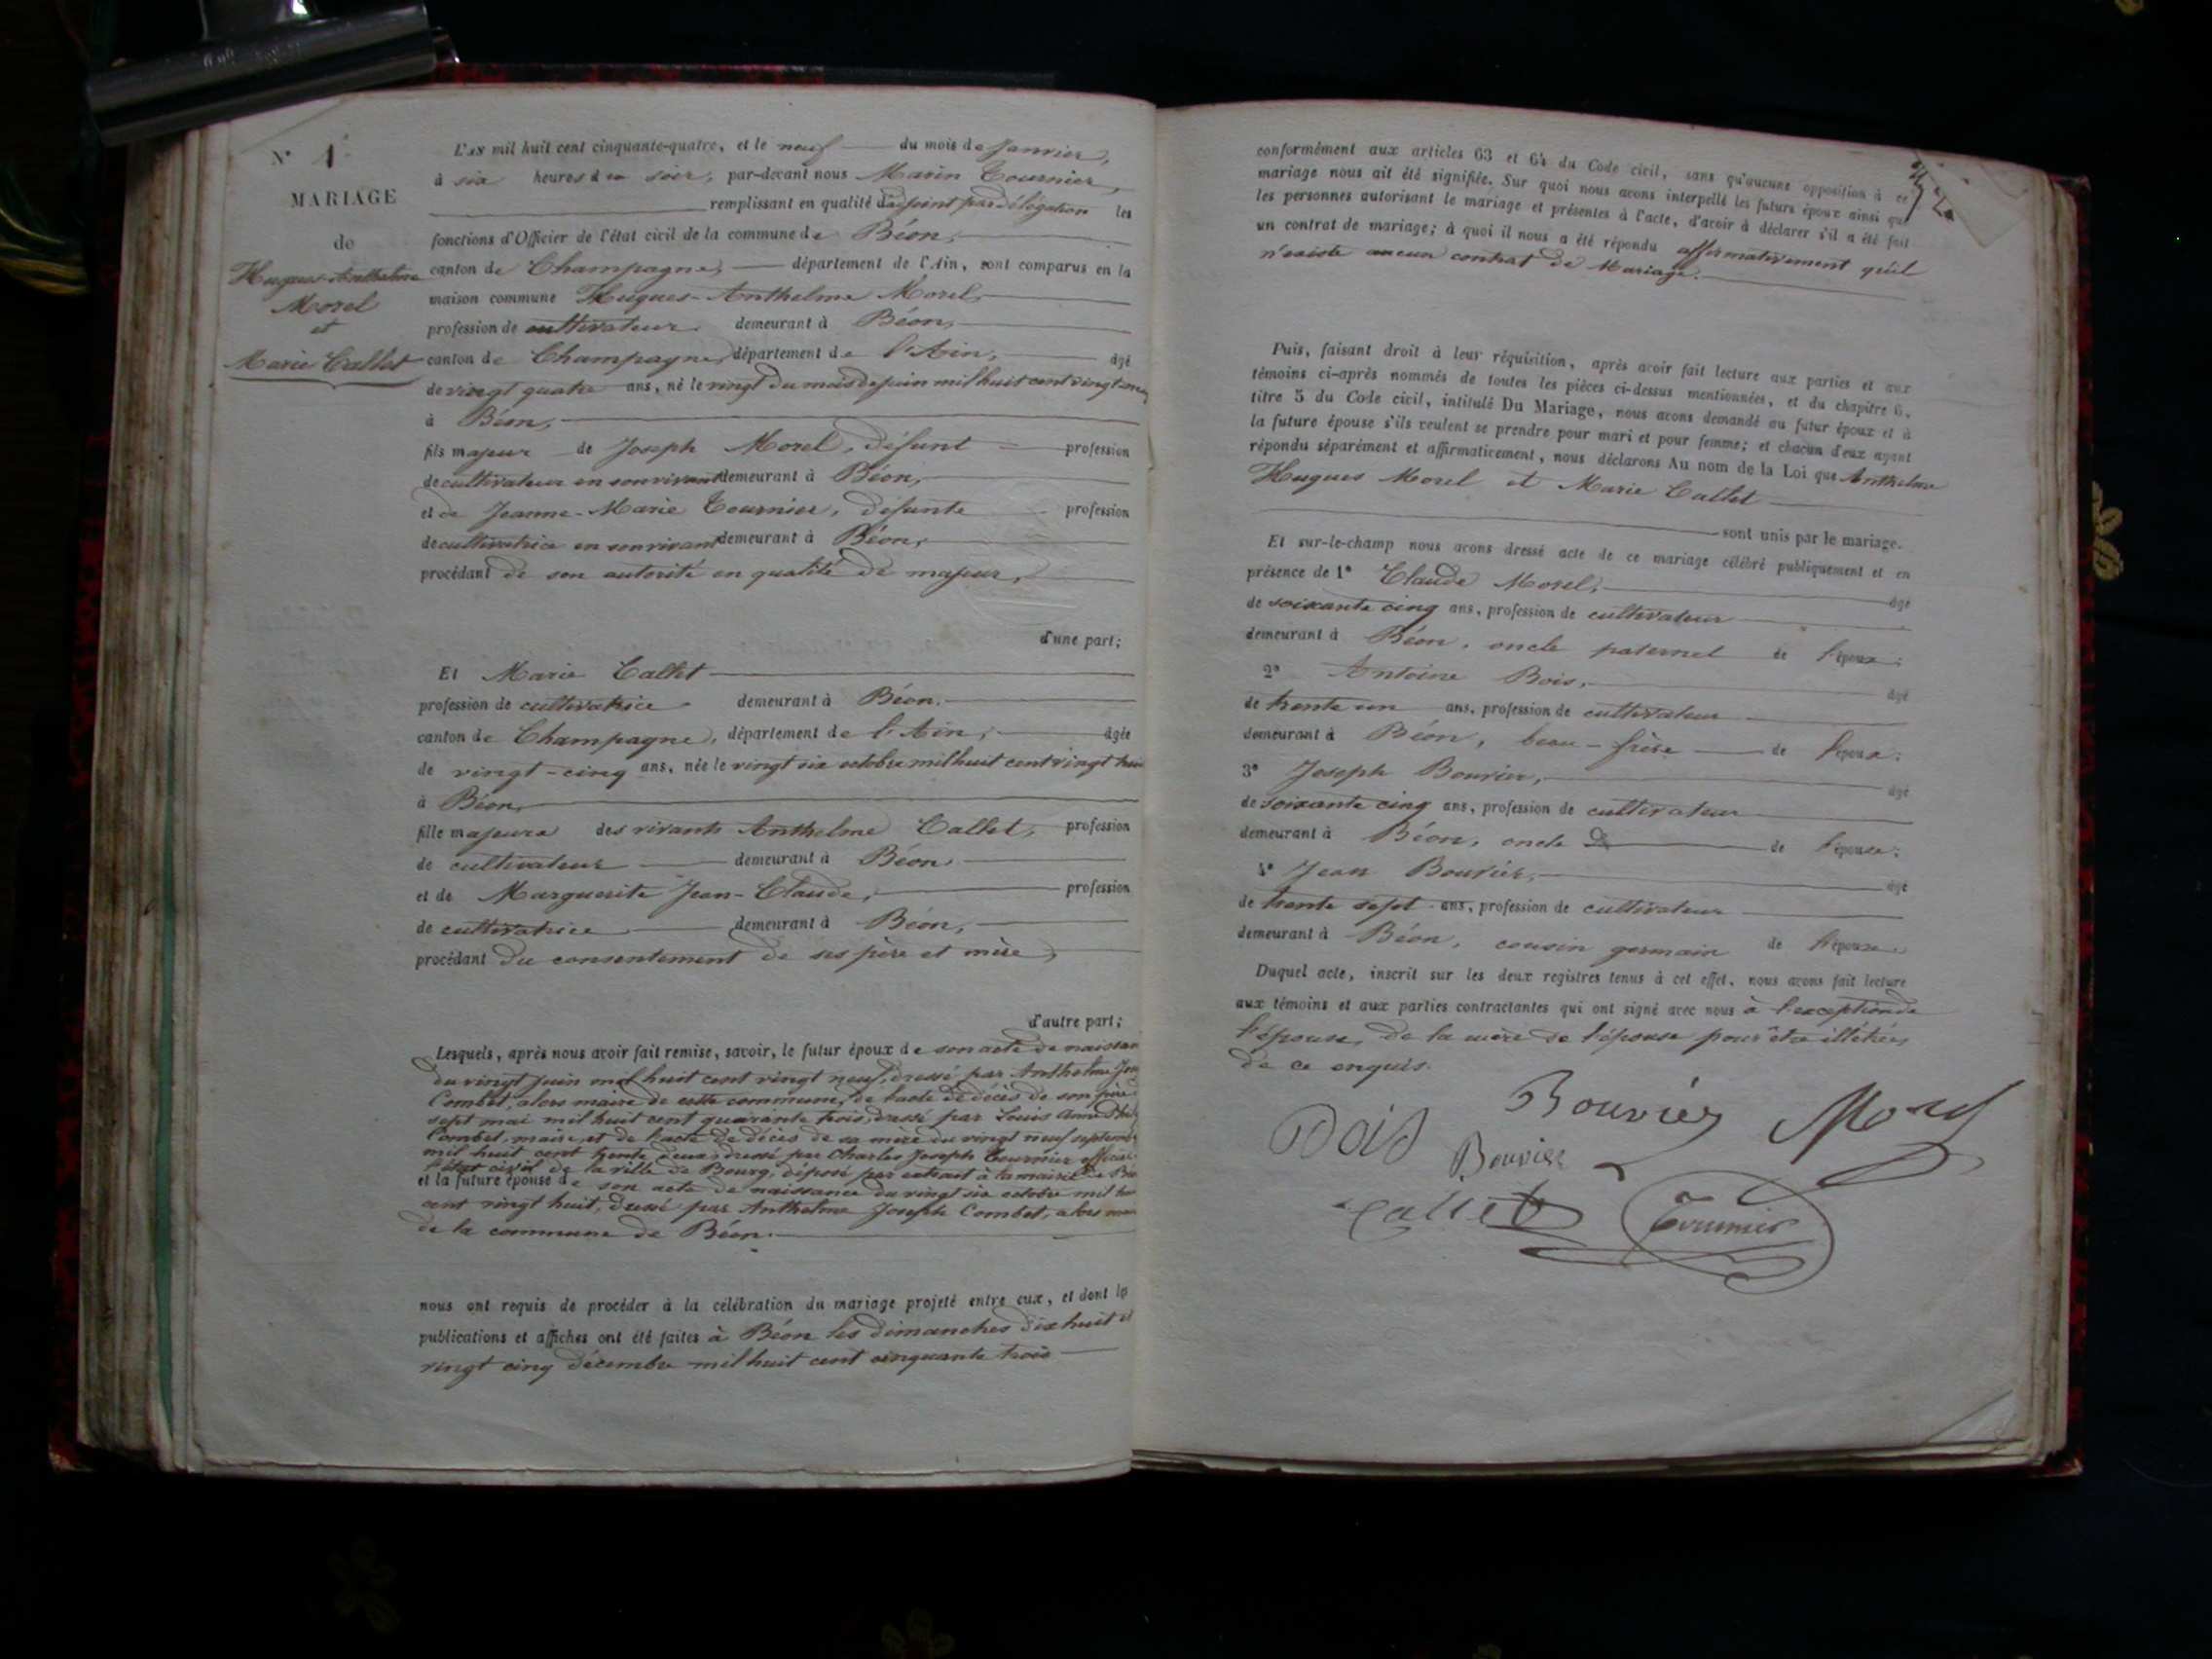 N° 1
MARIAGE
de
Hugues-Anthelme
Morel
et
Marie Callet
L'AN mil huit cent cinquante-quatre, et le neuf du mois de Janvier,
à six heures du soir, par-devant nous Marin Tournier,
remplissant en qualité d'adjoint par délégation les
fonctions d'Officier de l'état civil de la commune de Béon,
canton de Champagne, département de l'Ain, sont comparus en la
maison commune Hugues-Anthelme Morel,
profession de cultivateur demeurant à Béon,
canton de Champagne, département de l'Ain, âgé
de vingt quatre ans, né le vingt du mois de juin mil huit cent vingt neuf
à Béon,
fils majeur de Joseph Morel, défunt profession
de cultivateur en son vivant demeurant à Béon,
et de Jeanne-Marie Tournier, défunte profession
de cultivatrice en son vivant demeurant à Béon,
procédant de son autorité en qualité de majeur,
d'une part;
Et Marie Callet
profession de cultivatrice demeurant à Béon,
canton de Champagne, département de l'Ain, âgée
de vingt-cinq ans, née le vingt six octobre mil huit cent vingt huit
à Béon,
fille majeure des vivants Anthelme Callet, profession
de cultivateur demeurant à Béon
et de Marguerite Jean-Claude, profession
de cultivatrice demeurant à Béon,
procédant du consentement de ses père et mère,
d'autre part;
Lesquels, après nous avoir fait remise, savoir, le futur époux de son acte de naissan
du vingt juin mil huit cent vingt neuf, dressé par Anthelme Jos
Combet, alors maire de cette commune, de l'acte de décès de son père
sept mai mil huit cent quarante trois, dressé par Louis
Combet, maire, et de l'acte de décès de sa mère du vingt neuf septemb
mil huit cent trente deux, dressé par Charles Joseph Tournier officier
l'état civil de la ville de Bourg, déposé par extrait à la mairie de Béo
et la future épouse de son acte de naissance du vingt six octobre mil hui
cent vingt huit, dressé par Anthelme Joseph Combet, alors mai
de la commune de Béon.
nous ont requis de procéder à la célébration du mariage projeté entre eux, et dont les
publications et affiches ont été faites à Béon les dimanches dix huit et
vingt cinq décembre mil huit cent cinquante trois
conformément aux articles 63 et 64 du Code civil, sans qu'aucune opposition à ce
mariage nous ait été signifiée. Sur quoi nous avons interpellé les futurs époux ainsi que
les personnes autorisant le mariage et présentes à l'acte, d'avoir à déclarer s'il a été fait
un contrat de mariage; à quoi il nous a été répondu affirmativement qu'il
n'existe aucun contrat de Mariage.
Puis, faisant droit à leur réquisition, après avoir fait lecture aux parties et aux
témoins ci-après nommés de toutes les pièces ci-dessus mentionnées, et du chapitre 6,
titre 5 du Code civil, intitulé Du Mariage, nous avons demandé au futur époux et à
la future épouse s'ils veulent se prendre pour mari et pour femme; et chacun d'eux ayant
répondu séparément et affirmativement, nous déclarons Au nom de la Loi que Anthelme
Hugues Morel et Marie Callet
sont unis par le mariage.
Et sur-le-champ nous avons dressé acte de ce mariage célébré publiquement et en
présence de 1° Claude Morel, âgé
de soixante cinq ans, profession de cultivateur
demeurant à Béon, oncle paternel de l'époux;
2° Antoine Bois, âgé
de trente un ans, profession de cultivateur
demeurant à Béon, beau-frère de l'époux;
3° Joseph Bouvier, âgé
de soixante cinq ans, profession de cultivateur
demeurant à Béon, oncle de l'épouse;
4° Jean Bouvier, âgé
de trente sept ans, profession de cultivateur
demeurant à Béon, cousin germain de l'épouse
Duquel acte, inscrit sur les deux registres tenus à cet effet, nous avons fait lecture
aux témoins et aux parties contractantes qui ont signé avec nous à l'exception de
l'épouse, de la mère de l'épouse pour être illétrées
de ce enquis.
Bois Bouvier Morel
Bouvier
Callet Tournier